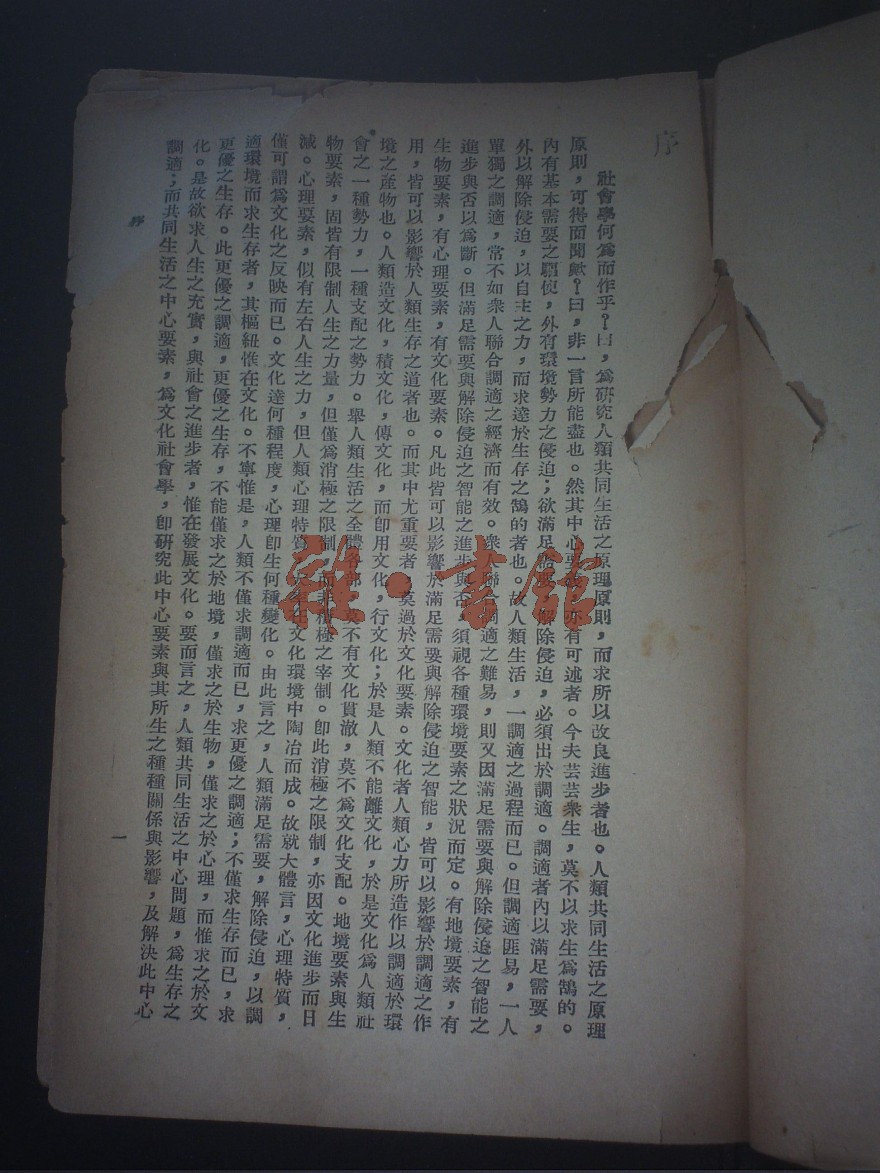 序
社會學何爲而作乎？曰，爲研究人類共同生活之原理原則，而求所以改良進步者也。人類共同生活之原理
原則，可得而聞歟？曰，非一言所能盡也。然其中心要義，亦有可述者。今夫芸芸衆生，莫不以求生爲鵠的。
內有基本需要之驅使，外有環境勢力之侵迫；欲滿足需要，解除侵迫，必須出於調適。調適者內以滿足需要，
外以解除侵迫，以自主之力，而求達於生存之鵠的者也。故人類生活，一調適之過程而已。但調適匪易，一人
單獨之調適，常不如衆人聯合調適之經濟而有效。衆人聯合調適之難易，則又因滿足需要與解除侵迫之智能之
進步與否以爲斷。但滿足需要與解除侵迫之智能之進步與否，須視各種環境要素之狀況而定。有地境要素，有
生物要素，有心理要素，有文化要素。凡此皆可以影響於滿足需要與解除侵迫之智能，皆可以影響於調適之作
用，皆可以影響於人類生存之道者也。而其中尤重要者，莫過於文化要素。文化者人類心力所造作以調適於環
境之產物也。人類造文化，積文化，傳文化，而卽用文化，行文化；於是人類不能離文化，於是文化爲人類社
會之一種勢力，一種支配之勢力。舉人類生活之全體各部，莫不有文化貫澈，莫不爲文化支配。地境要素與生
物要素，固皆有限制人生之力量，但僅爲消極之限制，而非積極之宰制。卽此消極之限制，亦因文化進步而日
減。心理要素，似有左右人生之力，但人類心理特質，大率在文化環境中陶冶而成。故就大體言，心理特質，
僅可謂爲文化之反映而已。文化達何種程度，心理卽生何種變化。由此言之，人類滿足需要，解除侵迫，以調
適環境而求生存者，其樞紐惟在文化。不寧惟是，人類不僅求調適而已，求更優之調適；不僅求生存而已，求
更優之生存。此更優之調適，更優之生存，不能僅求之於地境，僅求之於生物，僅求之於心理，而惟求之於文
化。是故欲求人生之充實，與社會之進步者，惟在發展文化。要而言之，人類共同生活之中心問題，爲生存之
調適；而共同生活之中心要素，爲文化社會學，卽研究此中心要素與其所生之種種關係與影響，及解決此中心
序
一
雜·書館